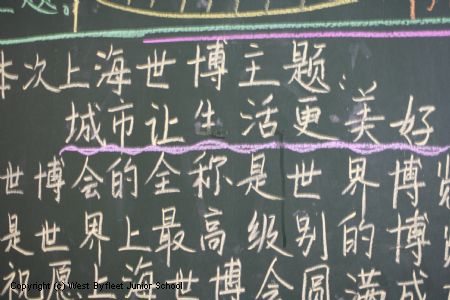 本次上海世博主题:
城市让生活更美好
世博会的全称是世界博览
是世界上最高级别的博
祝愿上海世博会圆满成
Copyright (c) West Byfleet Junior School